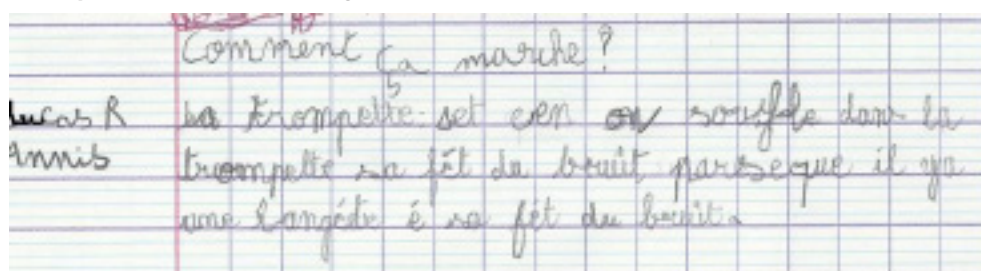 Comment ça marche?
Lucas R La trompette set cen on souffle dans la
Annis trompette sa fét du bruit parseque il ya
une langéte é sa fét du bruit.